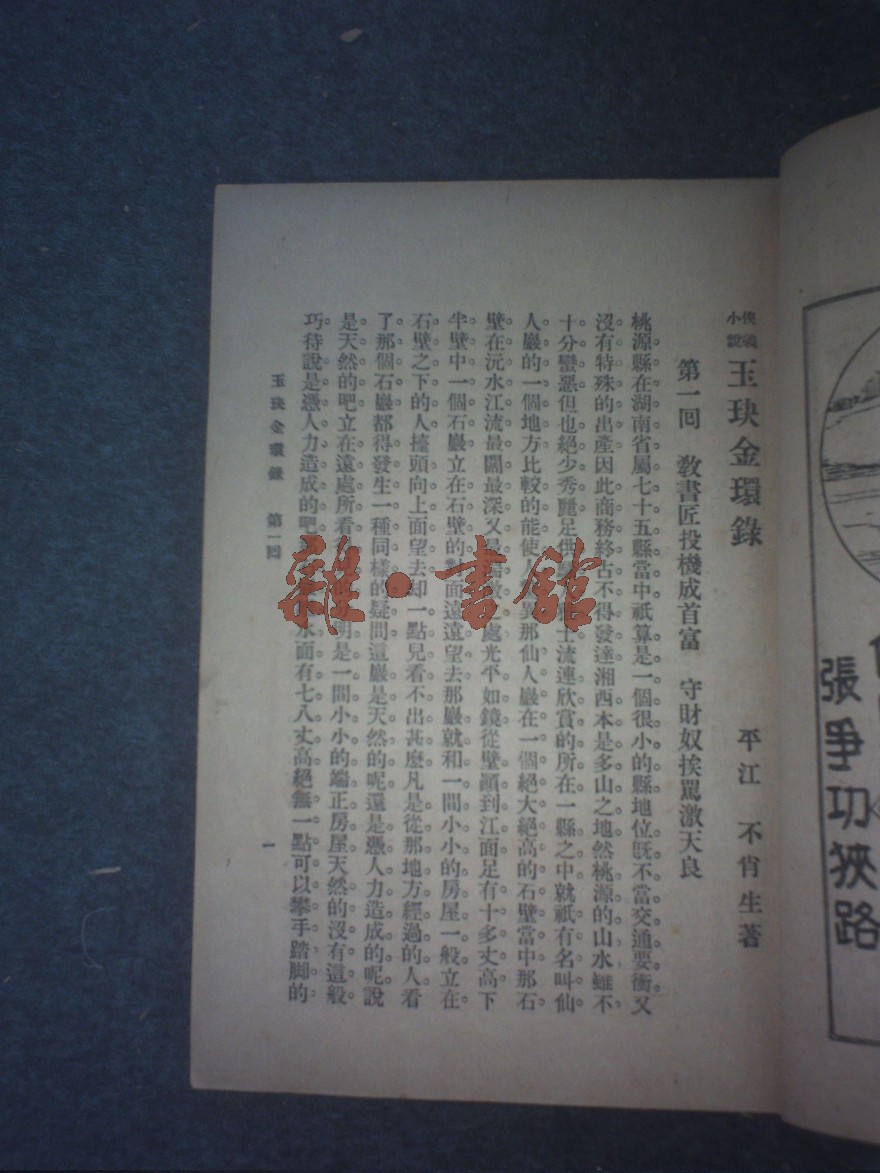 張爭功狹路
俠義小說 玉玦金環錄 平江 不肖生著
第一回 敎書匠投機成首富 守財奴挨罵激天良
桃源縣在湖南省屬七十五縣當中祇算是一個很小的縣地位旣不當交通要衝又
沒有特殊的出產因此商務終古不得發達湘西本是多山之地然桃源的山水雖不
十分蠻惡但也絕少秀麗足供士流連欣賞的所在一縣之中就祇有名叫仙
人巖的一個地方比較的能使人異那仙人巖在一個絕大絕高的石壁當中那石
壁在沅水江流最闊最深又之處光平如鏡從壁顚到江面足有十多丈高下
半壁中一個石巖立在石壁的對面遠遠望去那巖就和一間小小的房屋一般立在
石壁之下的人擡頭向上面望去却一點兒看不出甚麼凡是從那地方經過的人看
了那個石巖都得發生一種同樣的疑問這巖是天然的呢還是憑人力造成的呢說
是天然的吧立在遠處所看明是一間小小的端正房屋天然的沒有這般
巧待說是憑人力造成的吧水面有七八丈高絕無一點可以攀手踏脚的
玉玦金環錄 第一回
一
雜·書館